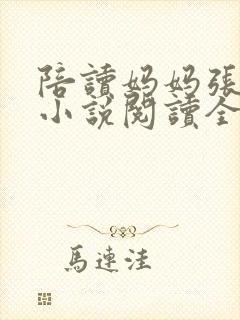 陪讀媽媽張
小說閱讀全
馬連洼